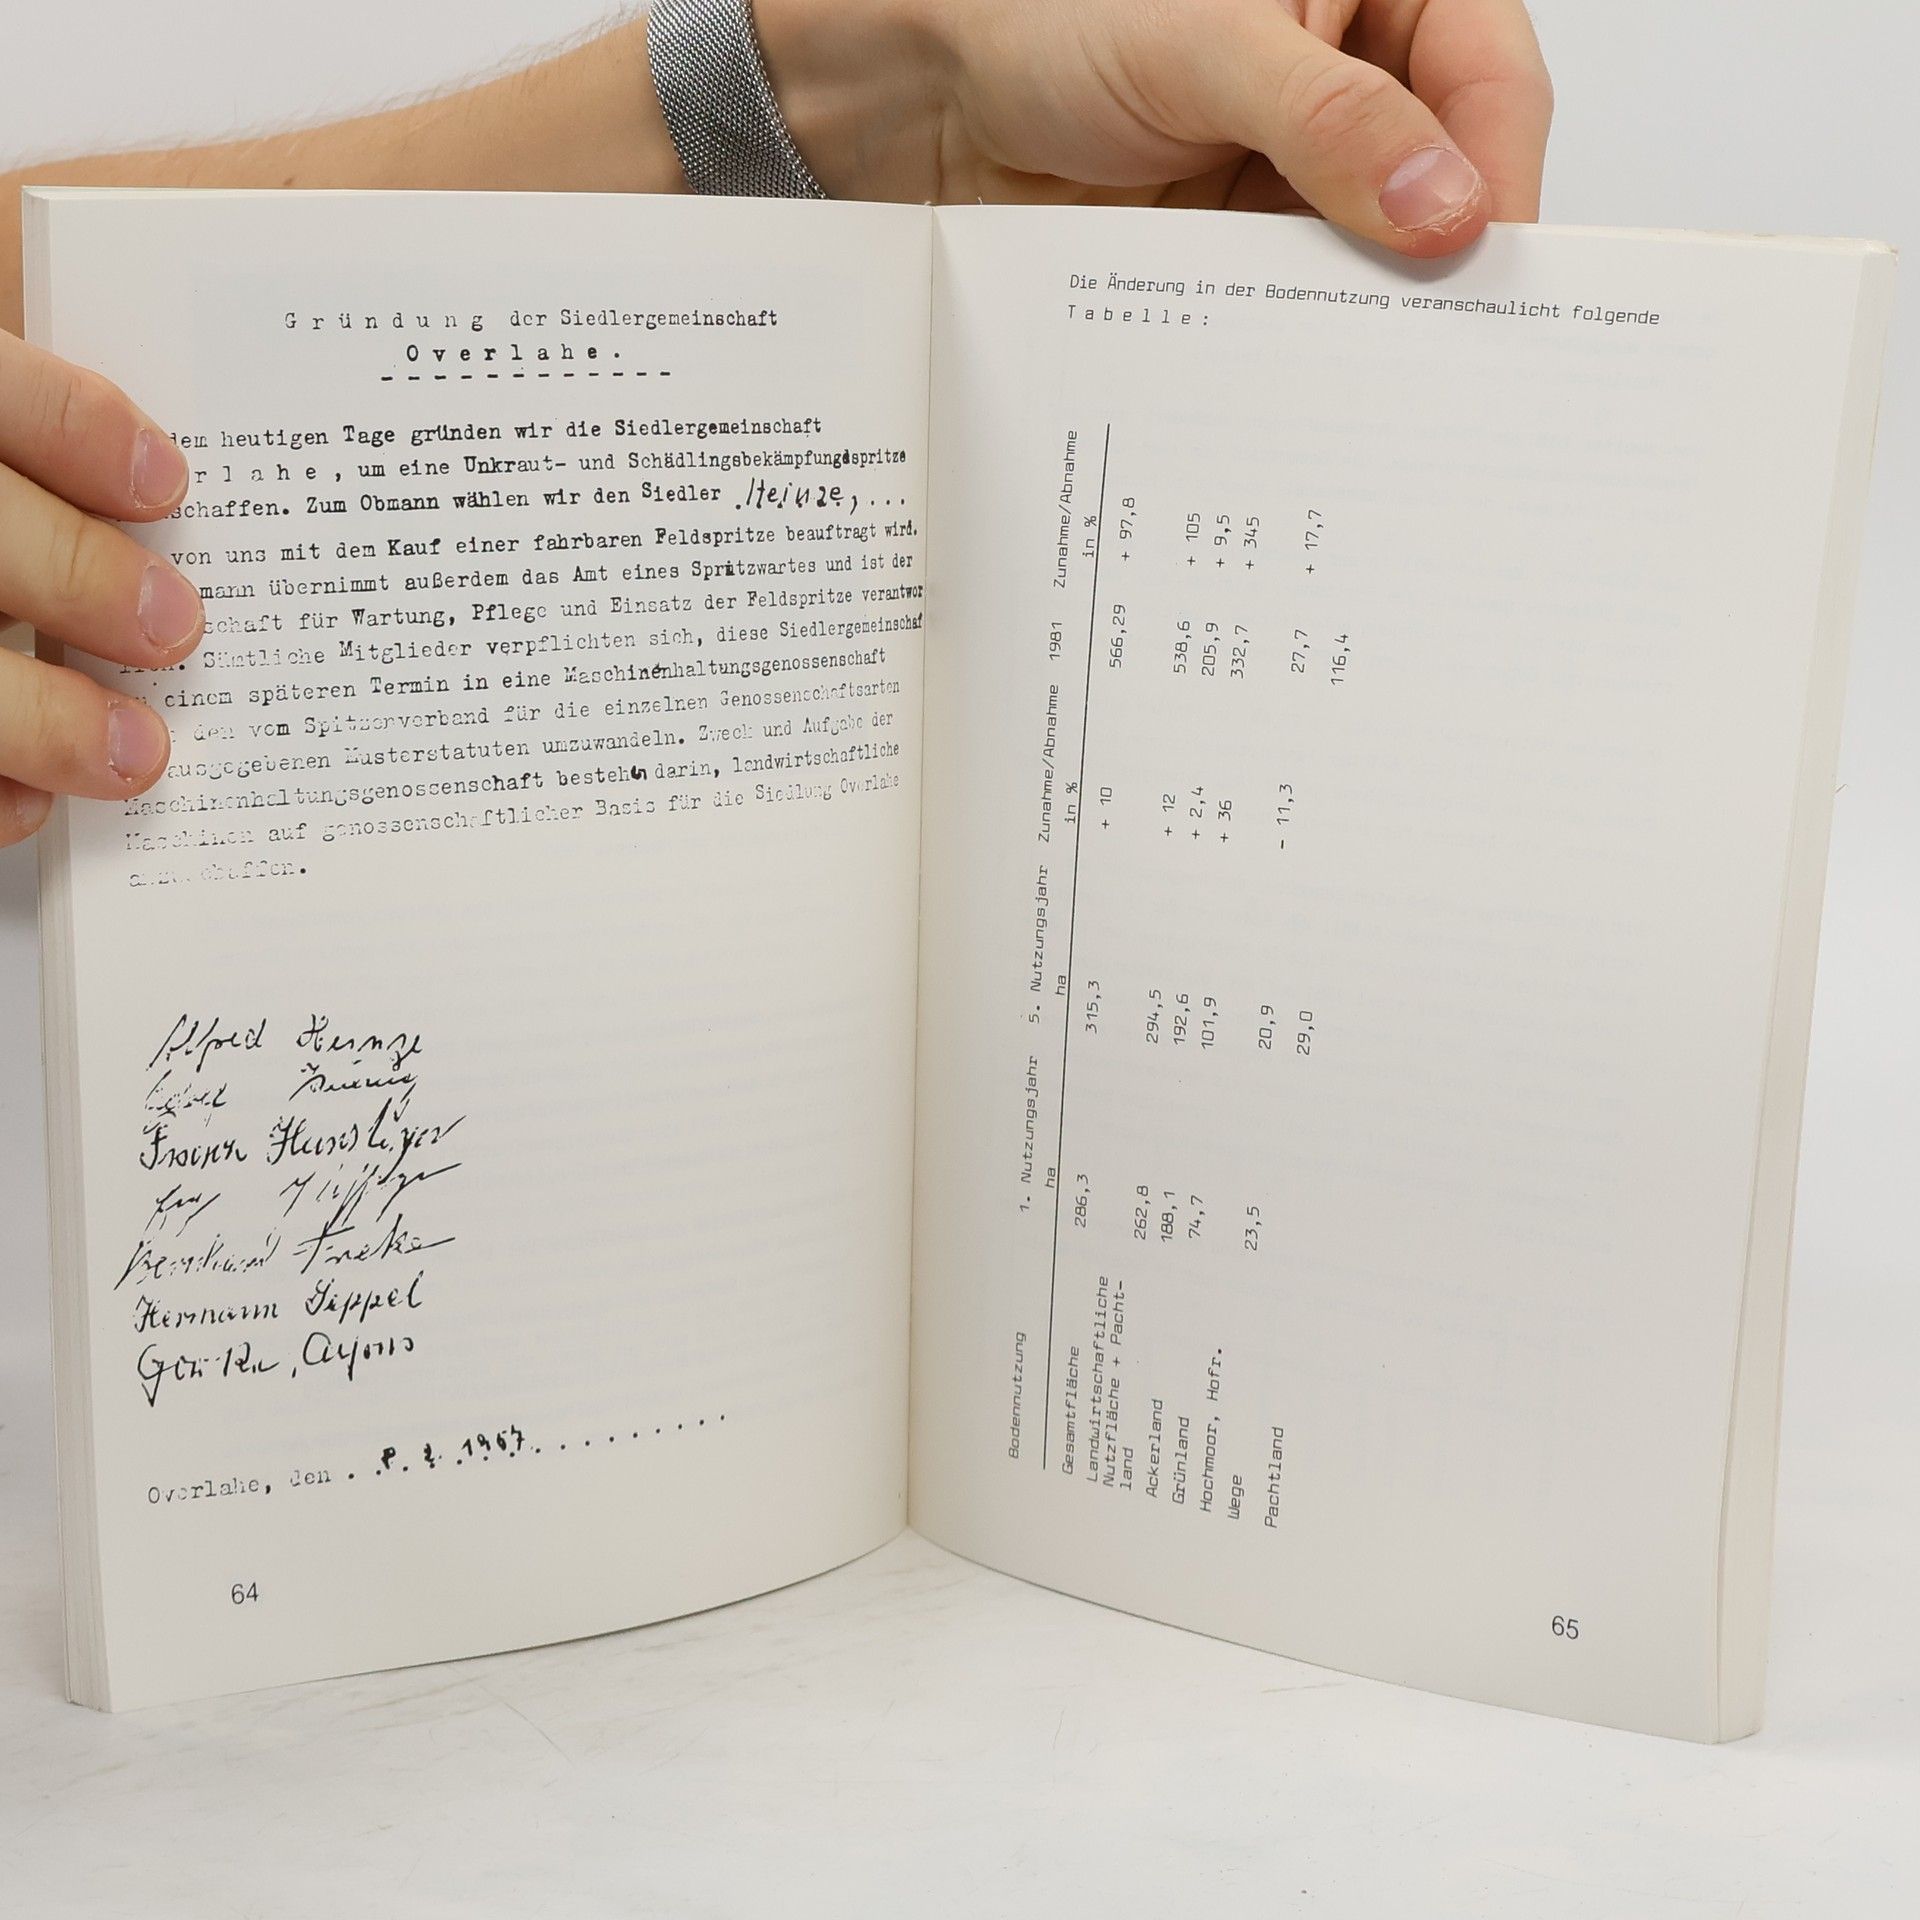 Gründung der Siedlergemeinschaft
Overlahe.
dem heutigen Tage gründen wir die Siedlergemeinschaft
rlahe, um eine Unkraut- und Schädlingsbekämpfungsspritze
schaffen. Zum Obmann wählen wir den Siedler Heinze, ...
von uns mit dem Kauf einer fahrbaren Feldspritze beauftragt wird.
mann übernimmt außerdem das Amt eines Spritzwartes und ist der
schaft für Wartung, Pflege und Einsatz der Feldspritze verantwor
Sämtliche Mitglieder verpflichten sich, diese Siedlergemeinschaf
einem späteren Termin in eine Maschinenhaltungsgenossenschaft
den vom Spitzenverband für die einzelnen Genossenschaftsarten
ausgegebenen Musterstatuten umzuwandeln. Zweck und Aufgabe der
Maschinenhaltungsgenossenschaft bestehen darin, landwirtschaftliche
Maschinen auf genossenschaftlicher Basis für die Siedlung Overlahe
anzuschaffen.
Alfred Heinze
Bernhard
Hermann Sippel
Overlahe, den . 8. 2. 1967 . . . . . . . . .
64
Die Änderung in der Bodennutzung veranschaulicht folgende
Tabelle:
Bodennutzung 1. Nutzungsjahr 5. Nutzungsjahr Zunahme/Abnahme 1981 Zunahme/Abnahme
ha ha in % in %
Gesamtfläche 286,3 315,3 + 10 566,29 + 97,8
Landwirtschaftliche
Nutzfläche + Pacht-
land 262,8 294,5 + 12 538,6 + 105
Ackerland 188,1 192,6 + 2,4 205,9 + 9,5
Grünland 74,7 101,9 + 36 332,7 + 345
Hochmoor, Hofr.
Wege 23,5 20,9 - 11,3 27,7 + 17,7
Pachtland 29,0 116,4
65